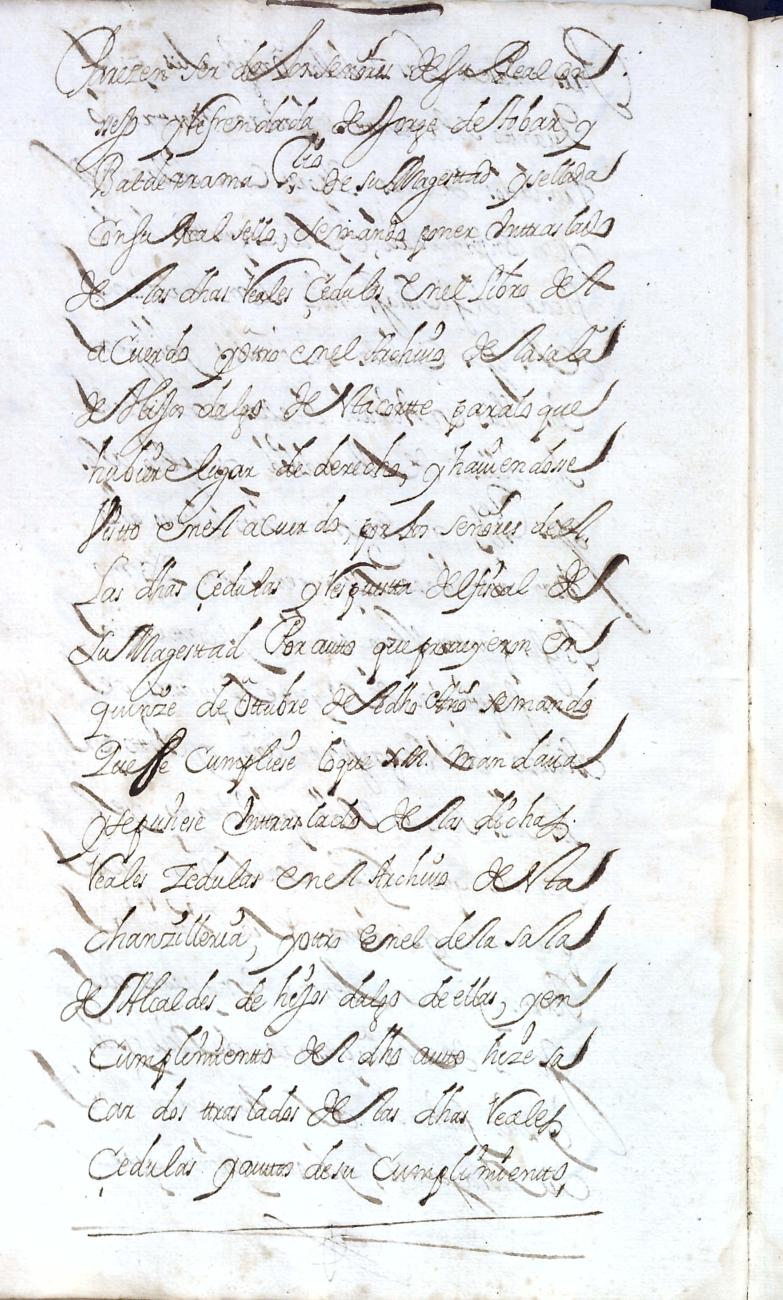 Parezen ser de los señores de su Real con
sejo y Refrendada de Jorge de tobar y
Balderrama S.rio de su Magesttad y sellada
Con su Real sello, se mando poner Un ttraslado
de las dhas Reales Çedulas en el libro del
aCuerdo y ottro en el Archivo de la sala
de Hijos dalgo de Vta cortte para lo que
hubiere lugar de derecho, y haviendosse
Visto en el aCuerdo por los señores del
Las dhas Çedulas y Respuesta del fiscal de
Su Magesttad Por autto que proveyeron en
quinze de Ottubre del dho se mando
Que se Cumpliese lo que S.M. mandava
y se pusiese Un ttraslado de las dichas
Reales Zedulas en el Archivo de Vta
chanzilleria, y ottro en el de la sala
de Alcaldes de hijos dalgo de ellas, y en
Cumplimientto del dho autto hize sa
car dos ttraslados de las dhas Reales
Çedulas y auttos de su Cumplimientto,